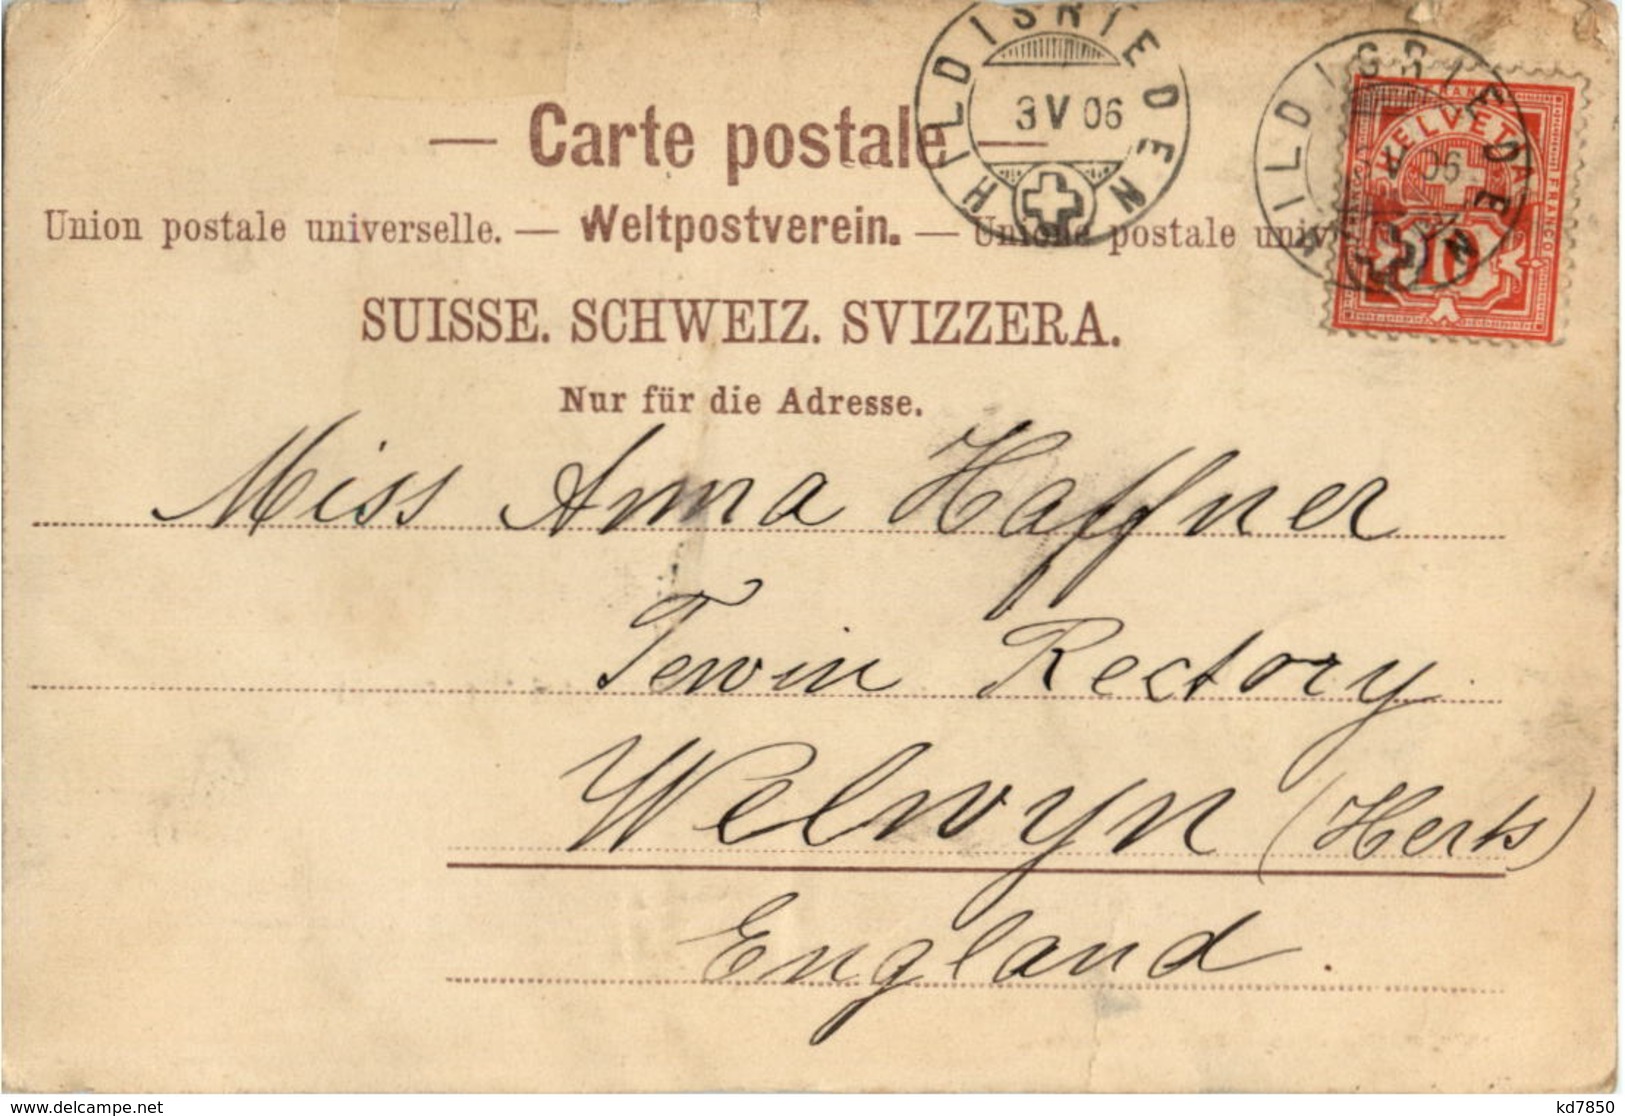 HILDISRIEDEN
3 V 06
HILDISRIEDEN
V 06
FRANCO
HELVETIA
10
— Carte postale —
Union postale universelle. — Weltpostverein. — Unione postale univ
SUISSE. SCHWEIZ. SVIZZERA.
Nur für die Adresse.
Miss Anna Haffner
Tewin Rectory
Welwyn (Herts)
England.
delcampe.net
kd7850